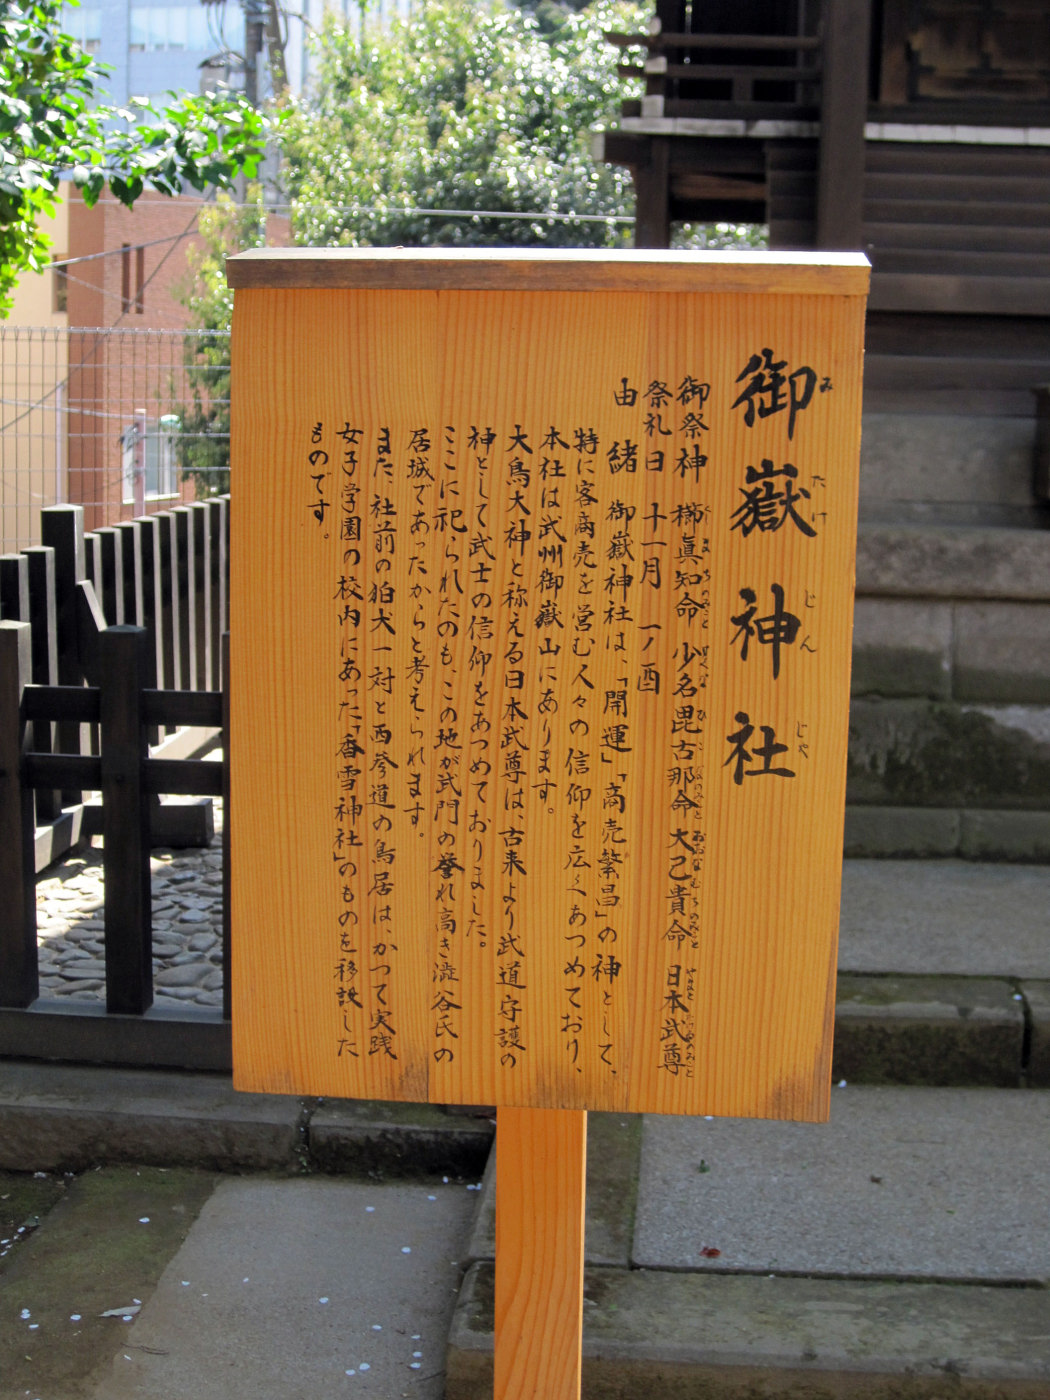 御嶽神社
みたけじんじゃ
御祭神 櫛眞知命 少名毘古那命 大己貴命 日本武尊
祭礼日 十一月 一ノ酉
由緒 御嶽神社は、「開運」「商売繁昌」の神として、
特に客商売を営む人々の信仰を広くあつめており、
本社は武州御嶽山にあります。
大鳥大神と称える日本武尊は、古来より武道守護の
神として武士の信仰をあつめておりました。
ここに祀られたのも、この地が武門の誉れ高き渋谷氏の
居城であったからと考えられます。
また、社前の狛犬一対と西参道の鳥居は、かつて実践
女子学園の校内にあった「香雪神社」のものを移設した
ものです。